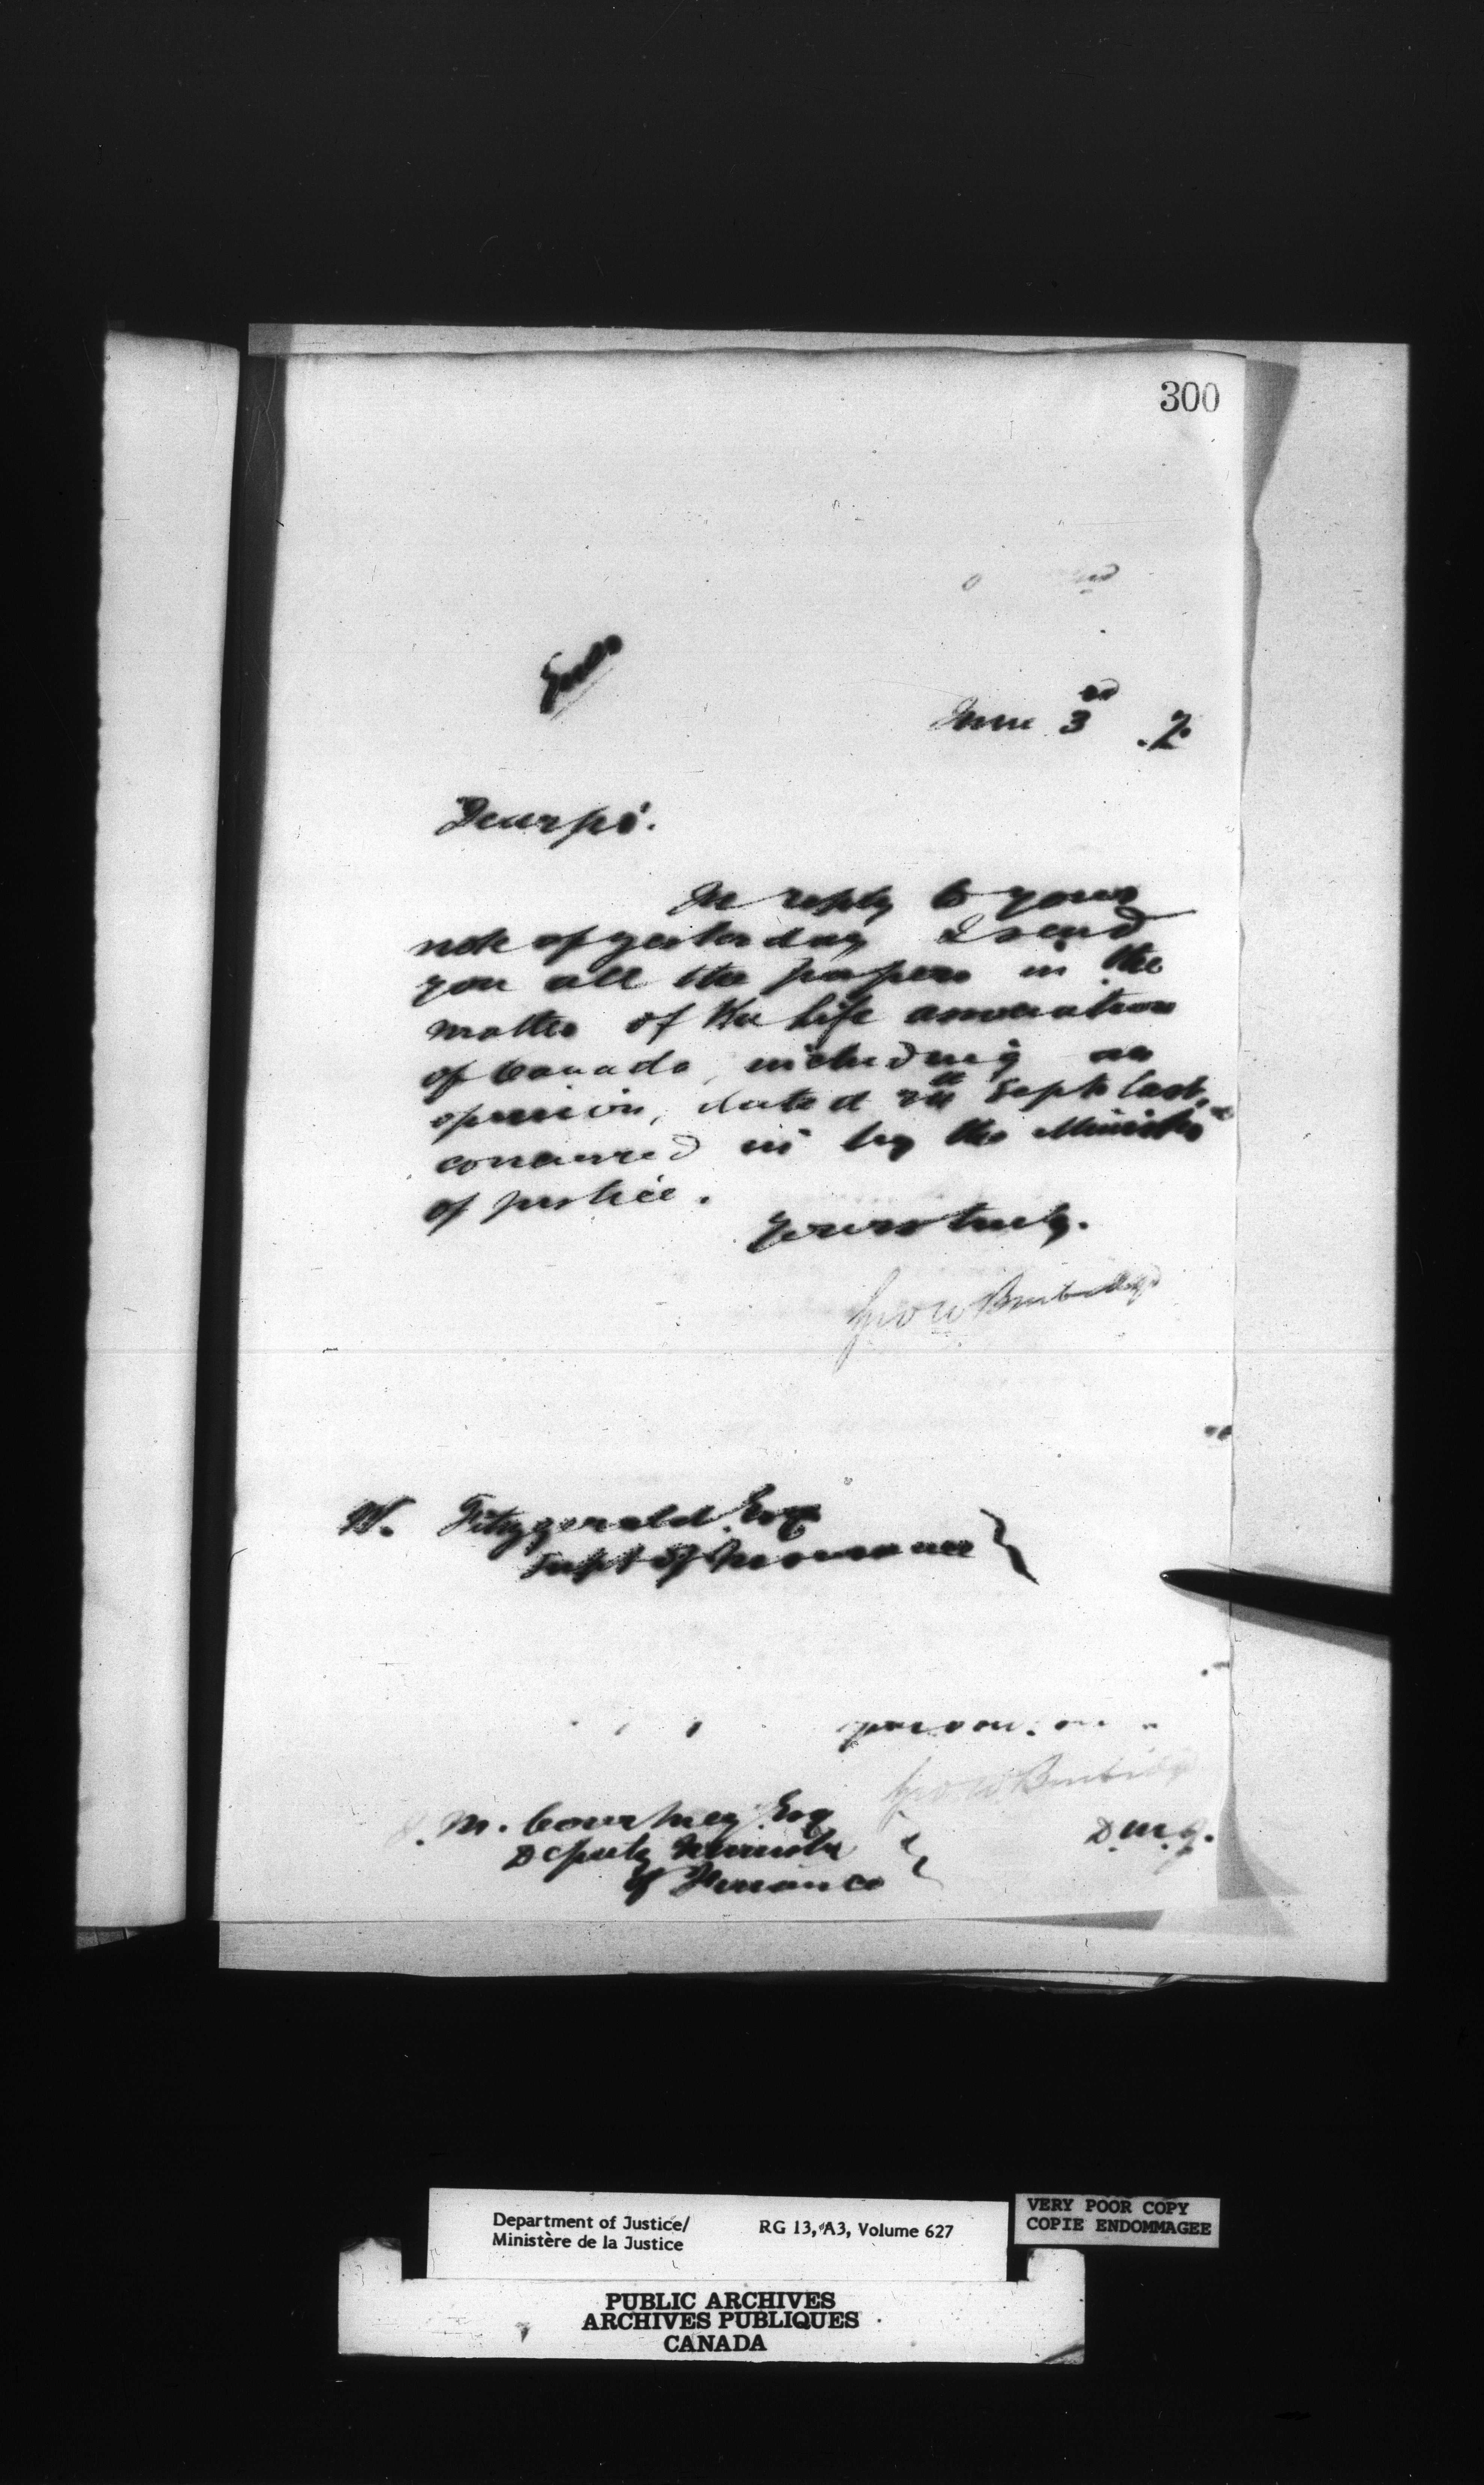 300
June 3rd .7.
Dear Sir.
In reply to your
note of yesterday I send
you all the papers in the
matter of the Life association
of Canada, including an
opinion, dated th Sept last,
concurred in by the Minister
of Justice.
Yours truly.
Geo W Burbidge
W. Fitzgerald Esq
Supt of Insurance
Geo W Burbidge
J. M. Courtney Esq
D.M.J.
Deputy Minister
of Finance
Department of Justice/
Ministère de la Justice
RG 13, A3, Volume 627
VERY POOR COPY
COPIE ENDOMMAGEE
PUBLIC ARCHIVES
ARCHIVES PUBLIQUES
CANADA